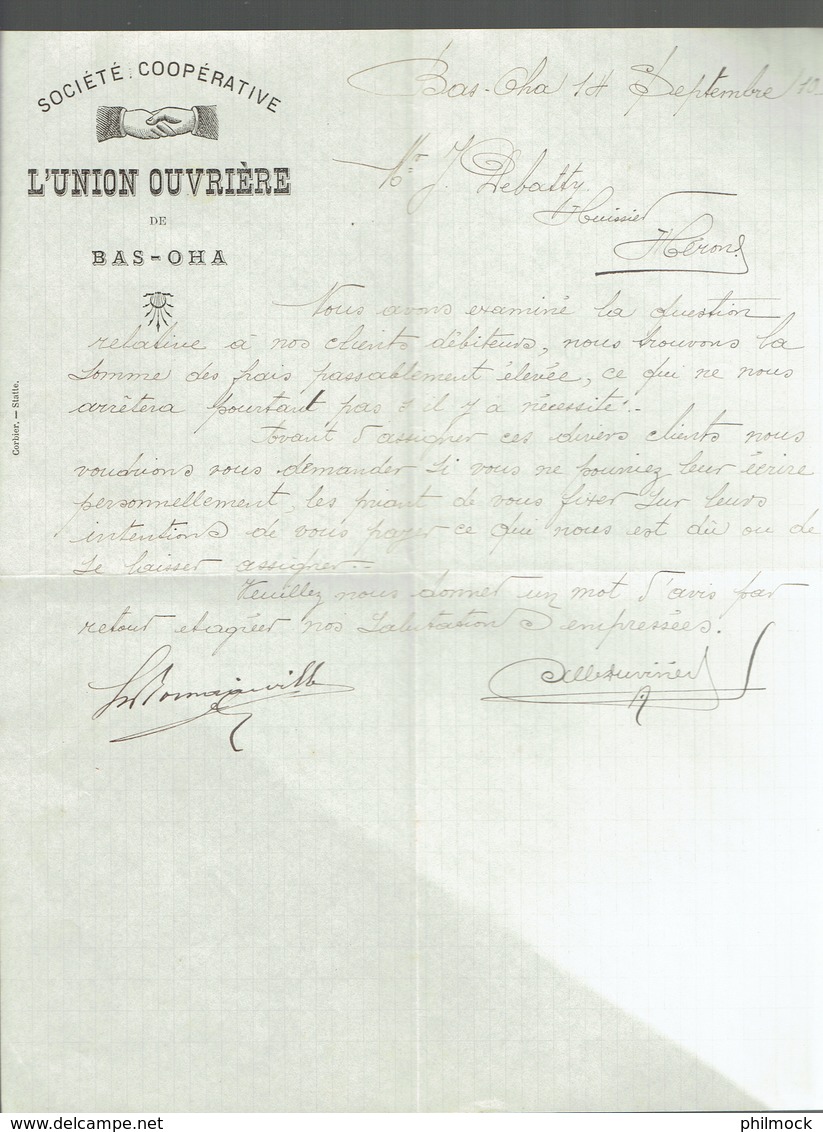 SOCIÉTÉ COOPÉRATIVE
L'UNION OUVRIÈRE
DE
BAS-OHA
Corbier. — Statte.
Bas-Oha 14 Septembre
Mr. J. Debatty
Huissier
Héron
Nous avons examiné la question
relative à nos clients débiteurs, nous trouvons la
somme des frais passablement élevée, ce qui ne nous
arrêtera pourtant pas s'il y a nécessité.-
Avant d'assigner ces divers clients nous
voudrions vous demander si vous ne pourriez leur écrire
personnellement, les priant de vous fixer sur leurs
intentions de vous payer ce qui nous est dû ou de
se laisser assigner.-
Veuillez nous donner un mot d'avis par
retour et agréer nos salutations empressées.
delcampe.net
philmock